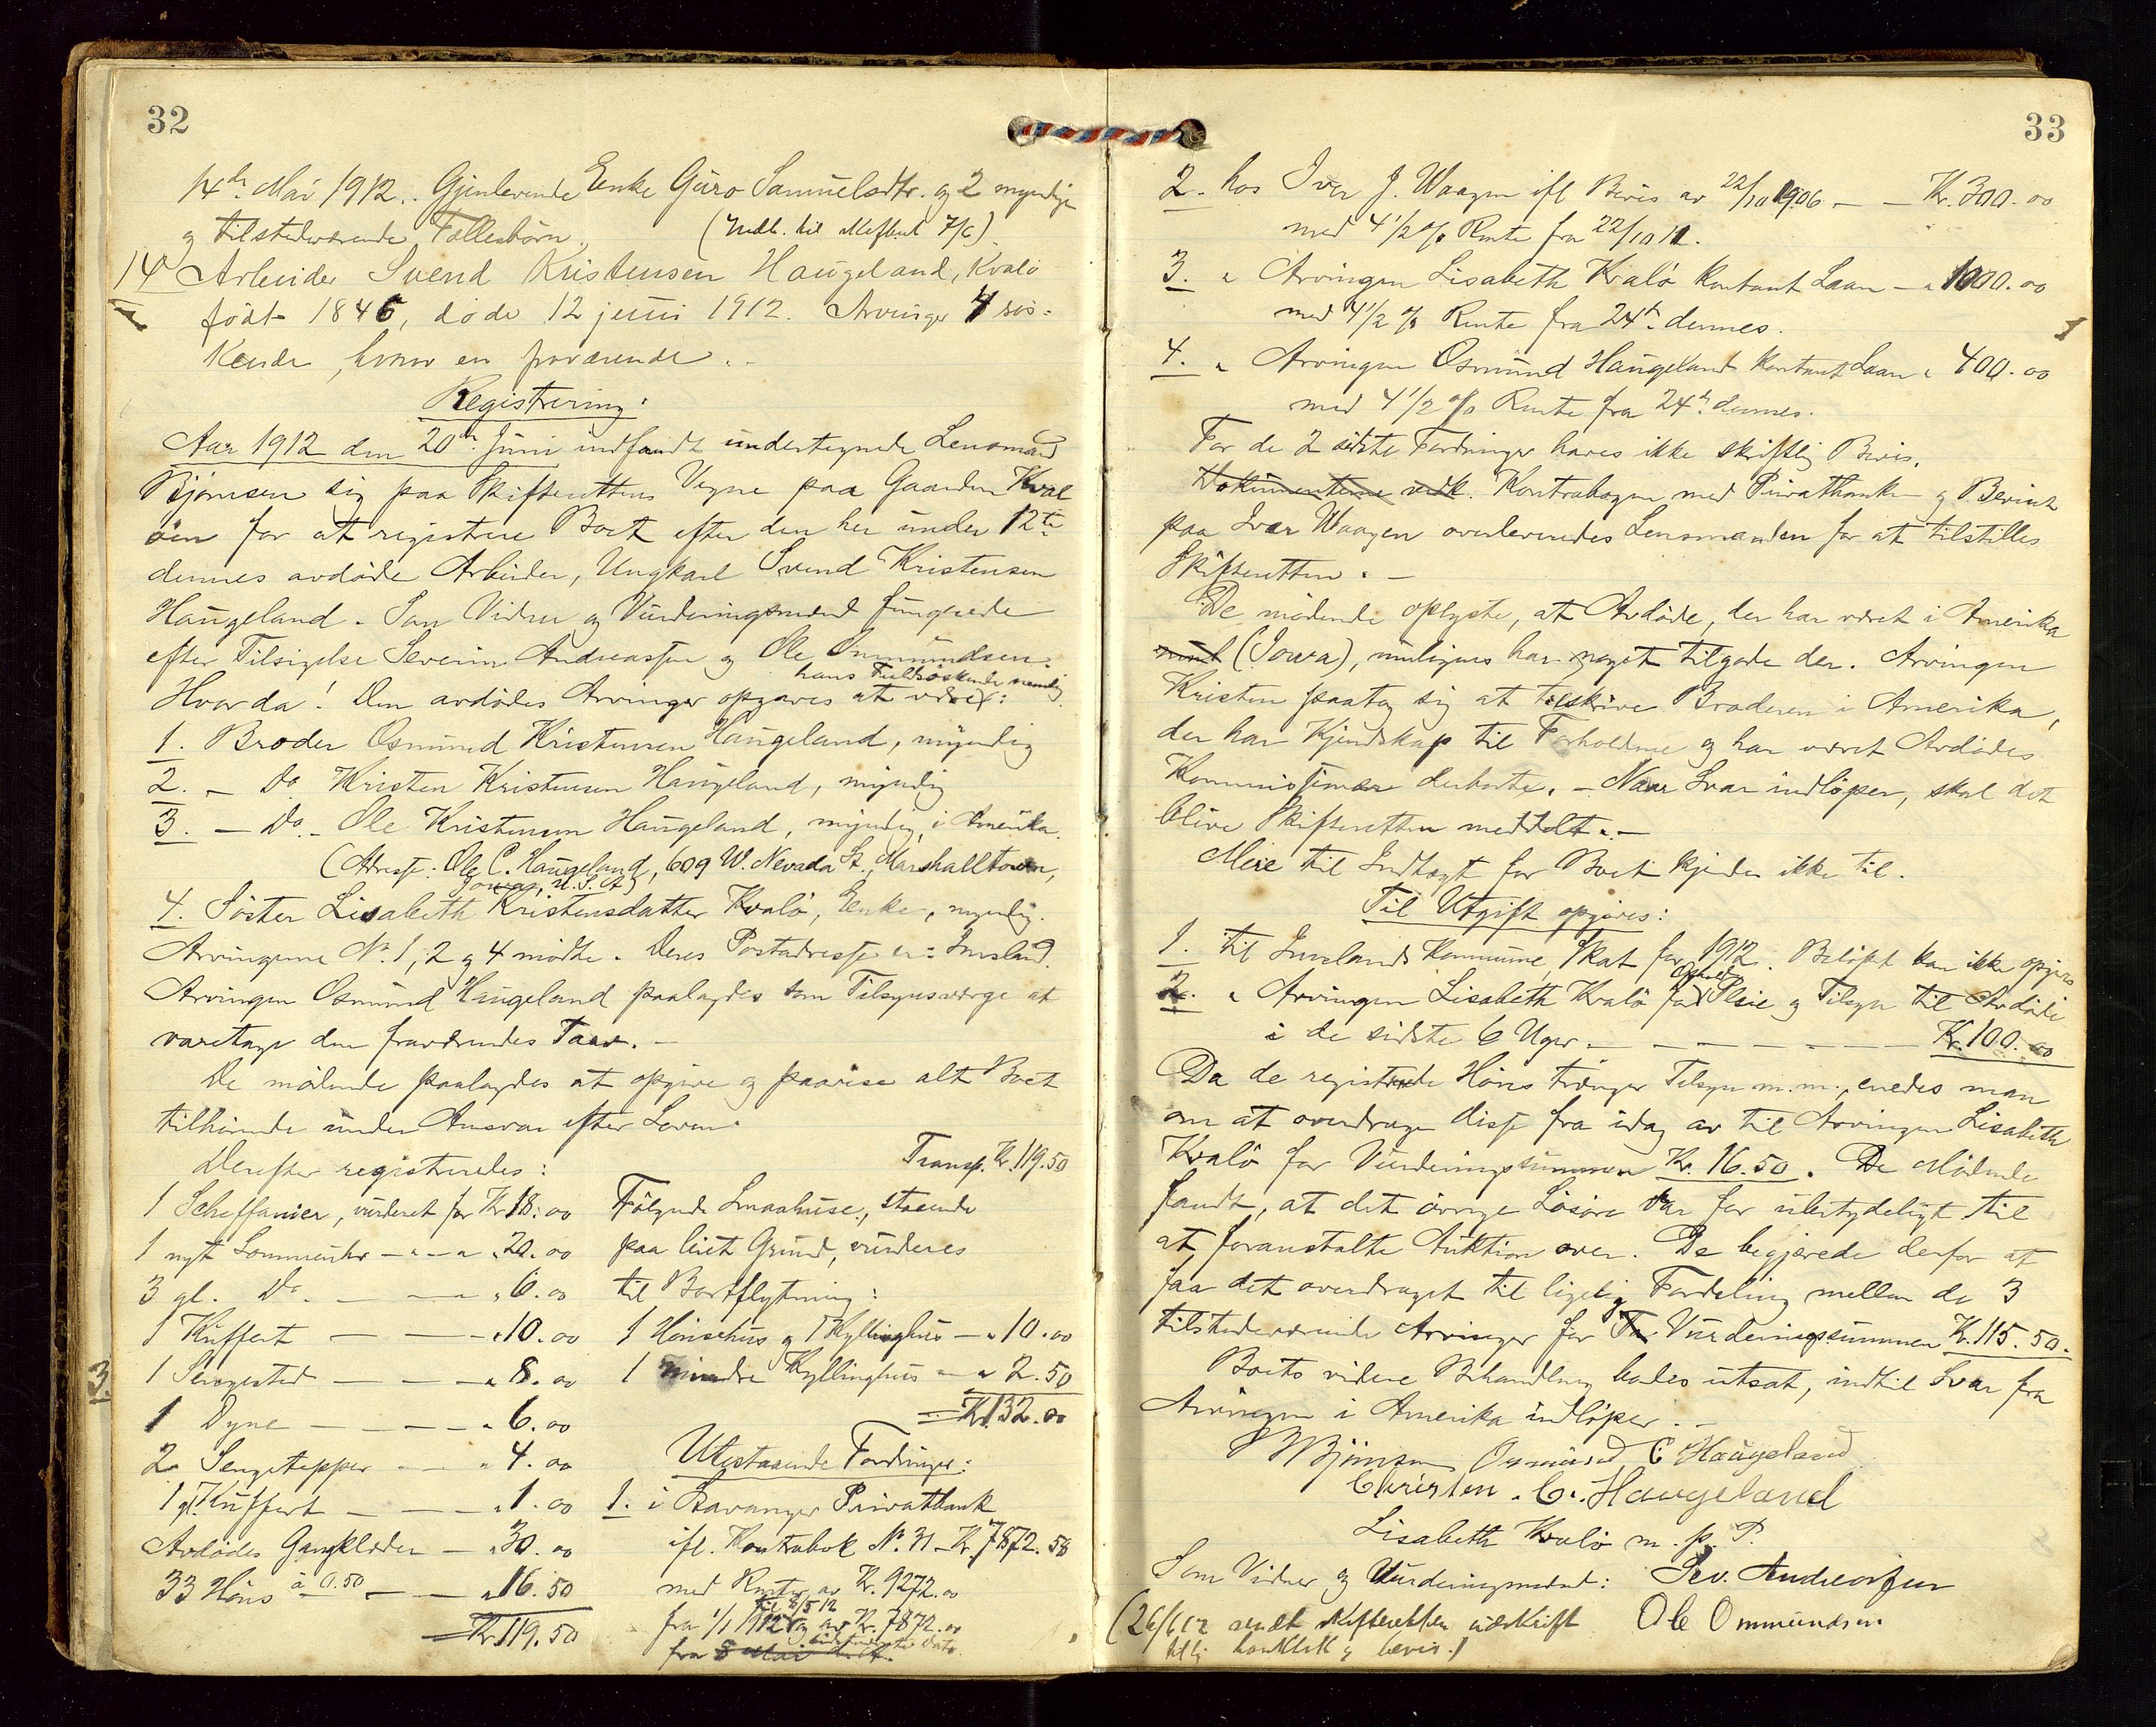 32
14de Mai 1912. Gjenlevende Enke Guro Samuelsdtr. og 2 myndige
og tilstedeværende Fællesbörn. (Indb. til Skifteret 7/6)
14 Arbeider Svend Kristensen Haugeland, Kvalö
födt 1846, döde 12 juni 1912. Arvinger 4 sös-
kende, hvorav en fraværende.
Registrering:
Aar 1912 den 20de Juni indfandt undertegnede Lensmand
Bjørnsen sig paa Skifterettens Vegne paa Gaarden Kval
öen for at registrere Boet efter den her under 12te
dennes avdöde Arbeider, Ungkarl Svend Kristensen
Haugeland. Som Vidner og Vurderingsmænd fungerede
efter Tilsigelse Severin Andreassen og Ole Ommundsen.
hans Fuldsöskende nemlig
Hvorda! Den avdödes Arvinger opgaves at være:
1. Broder Osmund Kristensen Haugeland, myndig
2. - Do Kristen Kristensen Haugeland, myndig
3. - Do - Ole Kristensen Haugeland, myndig, i Amerika.
(Adresse: Ole C. Haugeland, 609 W. Nevada St., Marshalltown,
Jowa, U.S.A)
4. Söster Lisabeth Kristensdatter Kvalö, Enke, myndig.
Arvingerne No. 1, 2 og 4 mödte. Deres Postadresse er: Imsland.
Arvingen Osmund Haugeland paalagdes som Tilsynsværge at
varetage den fraværendes Tarv. -
De mödende paalagdes at opgive og paavise alt Boet
tilhörende under Ansvar efter Loven.
Derefter registreredes:
1 Scheffonier, vurderet for Kr. 18.00
1 nyt Lommeuhr - " - " 20.00
3 gl. Do. - - " 6.00
1 Kuffert - - - " 10.00
1 Sengested - - - " 8.00
3.
1 Dyne - - - - " 6.00
2 Sengetepper - - " 4.00
1 gl. Kuffert - - - " 1.00
Avdödes Gangklæder - " 30.00
33 Höns à 0.50 - - " 16.50
Kr. 119.50
Transp. Kr. 119.50
Fölgende Smaahuse, staaende
paa leiet Grund, vurderes
til Bortflytning:
1 Hönsehus og 1 Kyllinghus - " 10.00
1 mindre Kyllinghus - " 2.50
Kr. 132.00
Utestaaende Fordringer:
1. i Stavanger Privatbank
ifl. Kontrabok No. 31 - Kr. 7872.58
med Renter av Kr. 9272.00
til 8/5 12
fra 1/1 1912 og av Kr. 7872.00
fra 8 Mai d. A.
33
2. hos Iver J. Waagen ifl Bevis av 22/10 1906 - - Kr. 300.00
med 4 1/2 % Rente fra 22/10 11.
3. " Arvingen Lisabeth Kvalö kontant Laan - " 1000.00
med 4 1/2 % Rente fra 24de dennes.
4. " Arvingen Osmund Haugeland kontant Laan " 400.00
med 4 1/2 % Rente fra 24de dennes.
For de 2 sidste Fordringer haves ikke skriftlig Bevis.
Dokumenterne vedk. Kontrabogen med Privatbanken og Beviset
paa Iver Waagen overleveredes Lensmanden for at tilstilles
Skifteretten. -
De mödende oplyste, at Avdöde, der har været i Amerika
(Jowa), muligens har noget tilgode der. Arvingen
Kristen paatog sig at tilskrive Broderen i Amerika,
der har Kjendskap til Forholdene og har været Avdödes
Kommissionær derborte. - Naar Svar indlöper, skal det
blive Skifteretten meddelt. -
Mere til Indtægt for Boet kjendes ikke til.
Til Utgift opgives:
1. til Imslands Kommune, Skat for 1912. Belöpet kan ikke opgives
2. " Arvingen Lisabeth Kvalö for Ophold, Pleie og Tilsyn til Avdöde
i de sidste 6 Uger. - - - - - Kr. 100.00
Da de registrerede Höns trænger Tilsyn m.m., enedes man
om at overdrage disse fra idag av til Arvingen Lisabeth
Kvalö for Vurderingssummen Kr. 16.50. De Mödende
fandt, at det övrige Lösöre var for ubetydeligt til
at foranstalte Auktion over. De begjærede derfor at
faa det overdraget til ligelig Fordeling mellem de 3
tilstedeværende Arvinger for Vurderingssummen Kr. 115.50.
Boets videre Behandling bades utsat, indtil Svar fra
Arvingen i Amerika indlöper. -
Bjørnsen Osmund C Haugeland
Christen. C. Haugeland
Lisabeth Kvalö m.p.P.
Som Vidner og Vurderingsmænd: Sev. Andreassen
Ole Ommundsen
(26/6 12 sendt Skifteretten utskrift
bevis.)